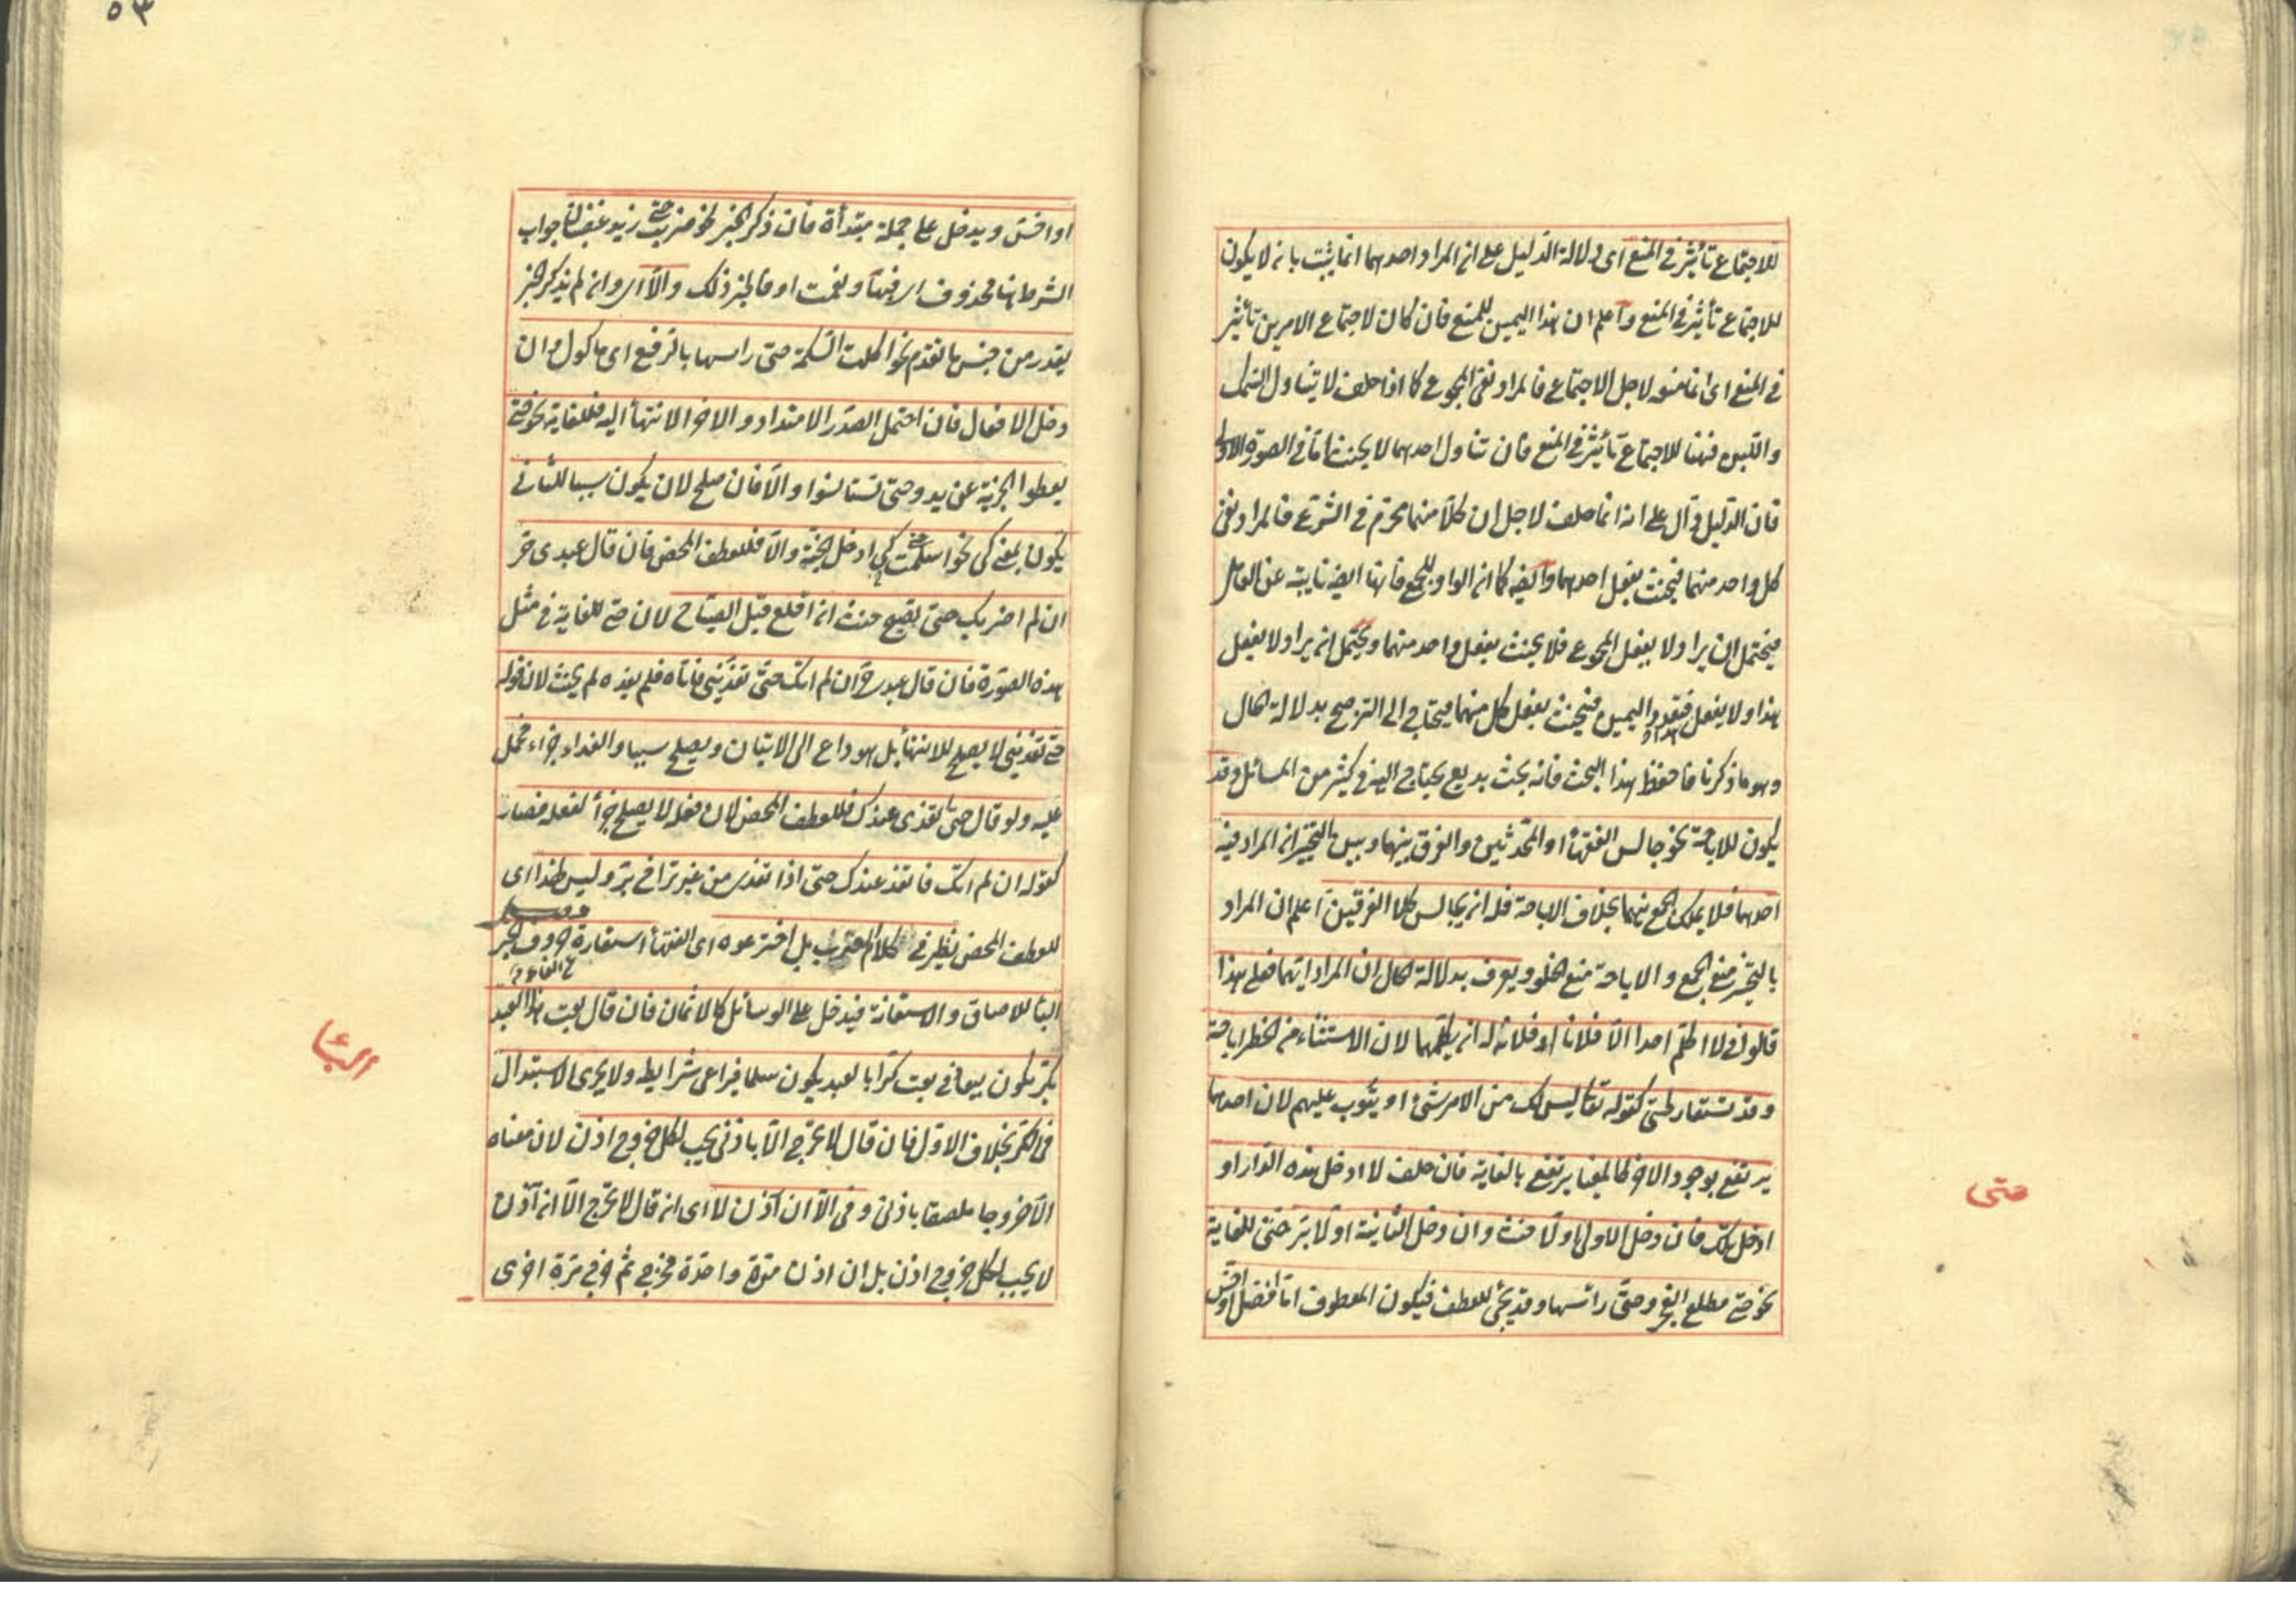 للاجتماع تأثير في المنع اى دلالة الدليل على ان المراد احدهما انما يثبت بان لا يكون
للاجتماع تأثير في المنع واعلم ان هذا اليمين للمنع فان كان لاجتماع الامرين تأثير
في المنع اى انما منعه لاجل الاجتماع فالمراد نفى المجموع كما اذا حلف لا يتناول السمك
واللبن فههنا للاجتماع تأثير في المنع فان تناول احدهما لا يحنث اما في الصورة الاولى
فان الدليل دال على انه انما حلف لاجل ان كلا منهما محرم في الشرع فالمراد نفى
كل واحد منهما فيحنث بفعل احدهما وايضه كما ان الواو للجمع فانها ايضه نايبة عن العامل
فيحتمل ان يراد لا يفعل المجموع فلا يحنث بفعل واحد منهما ويحتمل ان يراد لا يفعل
هذا ولا يفعل هذا فتعدد اليمين فيحنث بفعل كل منهما فيحتاج الى الترجيح بدلالة الحال
وهو ما ذكرنا فاحفظ هذا البحث فانه بحث بديع يحتاج اليه في كثير من المسائل وقد
يكون للاباحة نحو جالس الفقهأ او المحدثين والفرق بينهما وبين التخيير ان المراد فيه
احدهما فلا يملك الجمع بينهما بخلاف الاباحة فله ان يجالس كلا الفريقين اعلم ان المراد
بالتخيير منع الجمع والاباحة منع الخلو ويعرف بدلالة الحال ان المراد ايهما فعلى هذا
قالوا في لا اكلم احدا الا فلانا او فلانا له ان يكلمهما لان الاستثناء من الحظر اباحة
وقد تستعار لحتى كقوله تعا ليس لك من الامر شئ او يتوب عليهم لان احدهما
يرتفع بوجود الاخر كالمغيا يرتفع بالغاية فان حلف لا ادخل هذه الدار او
ادخل تلك فان دخل الاولى اولا حنث وان دخل الثانية اولا بر حتى للغاية
نحو حتى مطلع الفجر وحتى رأسها وقد يجئ للعطف فيكون المعطوف اما افضل او اخس
حتى
٥٣
او اخس ويدخل على جملة مبتدأة فان ذكر الخبر نحو ضربت حتى زيد غضبان جواب
الشرط هنا محذوف اى فبها ونعمت او فالخبر ذلك والا اى وان لم يذكر الخبر
يقدر من جنس ما تقدم نحو اكلت السمكة حتى راسها بالرفع اى ماكول وان
دخل الافعال فان احتمل الصدر الامتداد والاخر الانتهأ اليه فللغاية نحو حتى
يعطوا الجزية عن يد وحتى تستانسوا والا فان صلح لان يكون سببا للثانى
يكون بمعنى كى نحو اسلمت حتى ادخل الجنة والا فللعطف المحض فان قال عبدى حر
ان لم اضربك حتى تصيح حنث ان اقلع قبل الصياح لان حتى للغاية في مثل
هذه الصورة فان قال عبدى حر ان لم اتك حتى تغدينى فاتاه فلم يغده لم يحنث لان قوله
حتى تغدينى لا يصلح للانتهأ بل هو داع الى الاتيان ويصلح سببا والغداء جزاء فحمل
عليه ولو قال حتى اتغدى عندك فللعطف المحض لان فعله لا يصلح جزأ لفعله فصار
كقوله ان لم اتك فاتغد عندك حتى اذا تغدى من غير تراخ بر وليس لهذا اى
للعطف المحض نظير في كلام العرب بل اخترعوه اى الفقهأ استعارة حروف الجر
البأ للالصاق والاستعانة فيدخل على الوسائل كالاثمان فان قال بعت هذا العبد
بكر يكون بيعا وفى بعت كرا بالعبد يكون سلما فيراعى شرايطه ولا يجرى الاستبدال
فى الكر بخلاف الاول فان قال لا تخرج الا باذنى يجب لكل خروج اذن لان معناه
الا خروجا ملصقا باذنى وفى الا ان اذن لا اى ان قال لا تخرج الا ان آذن
لا يجب لكل خروج اذن بل ان اذن مرة واحدة فخرج ثم خرج مرة اخرى
البأ